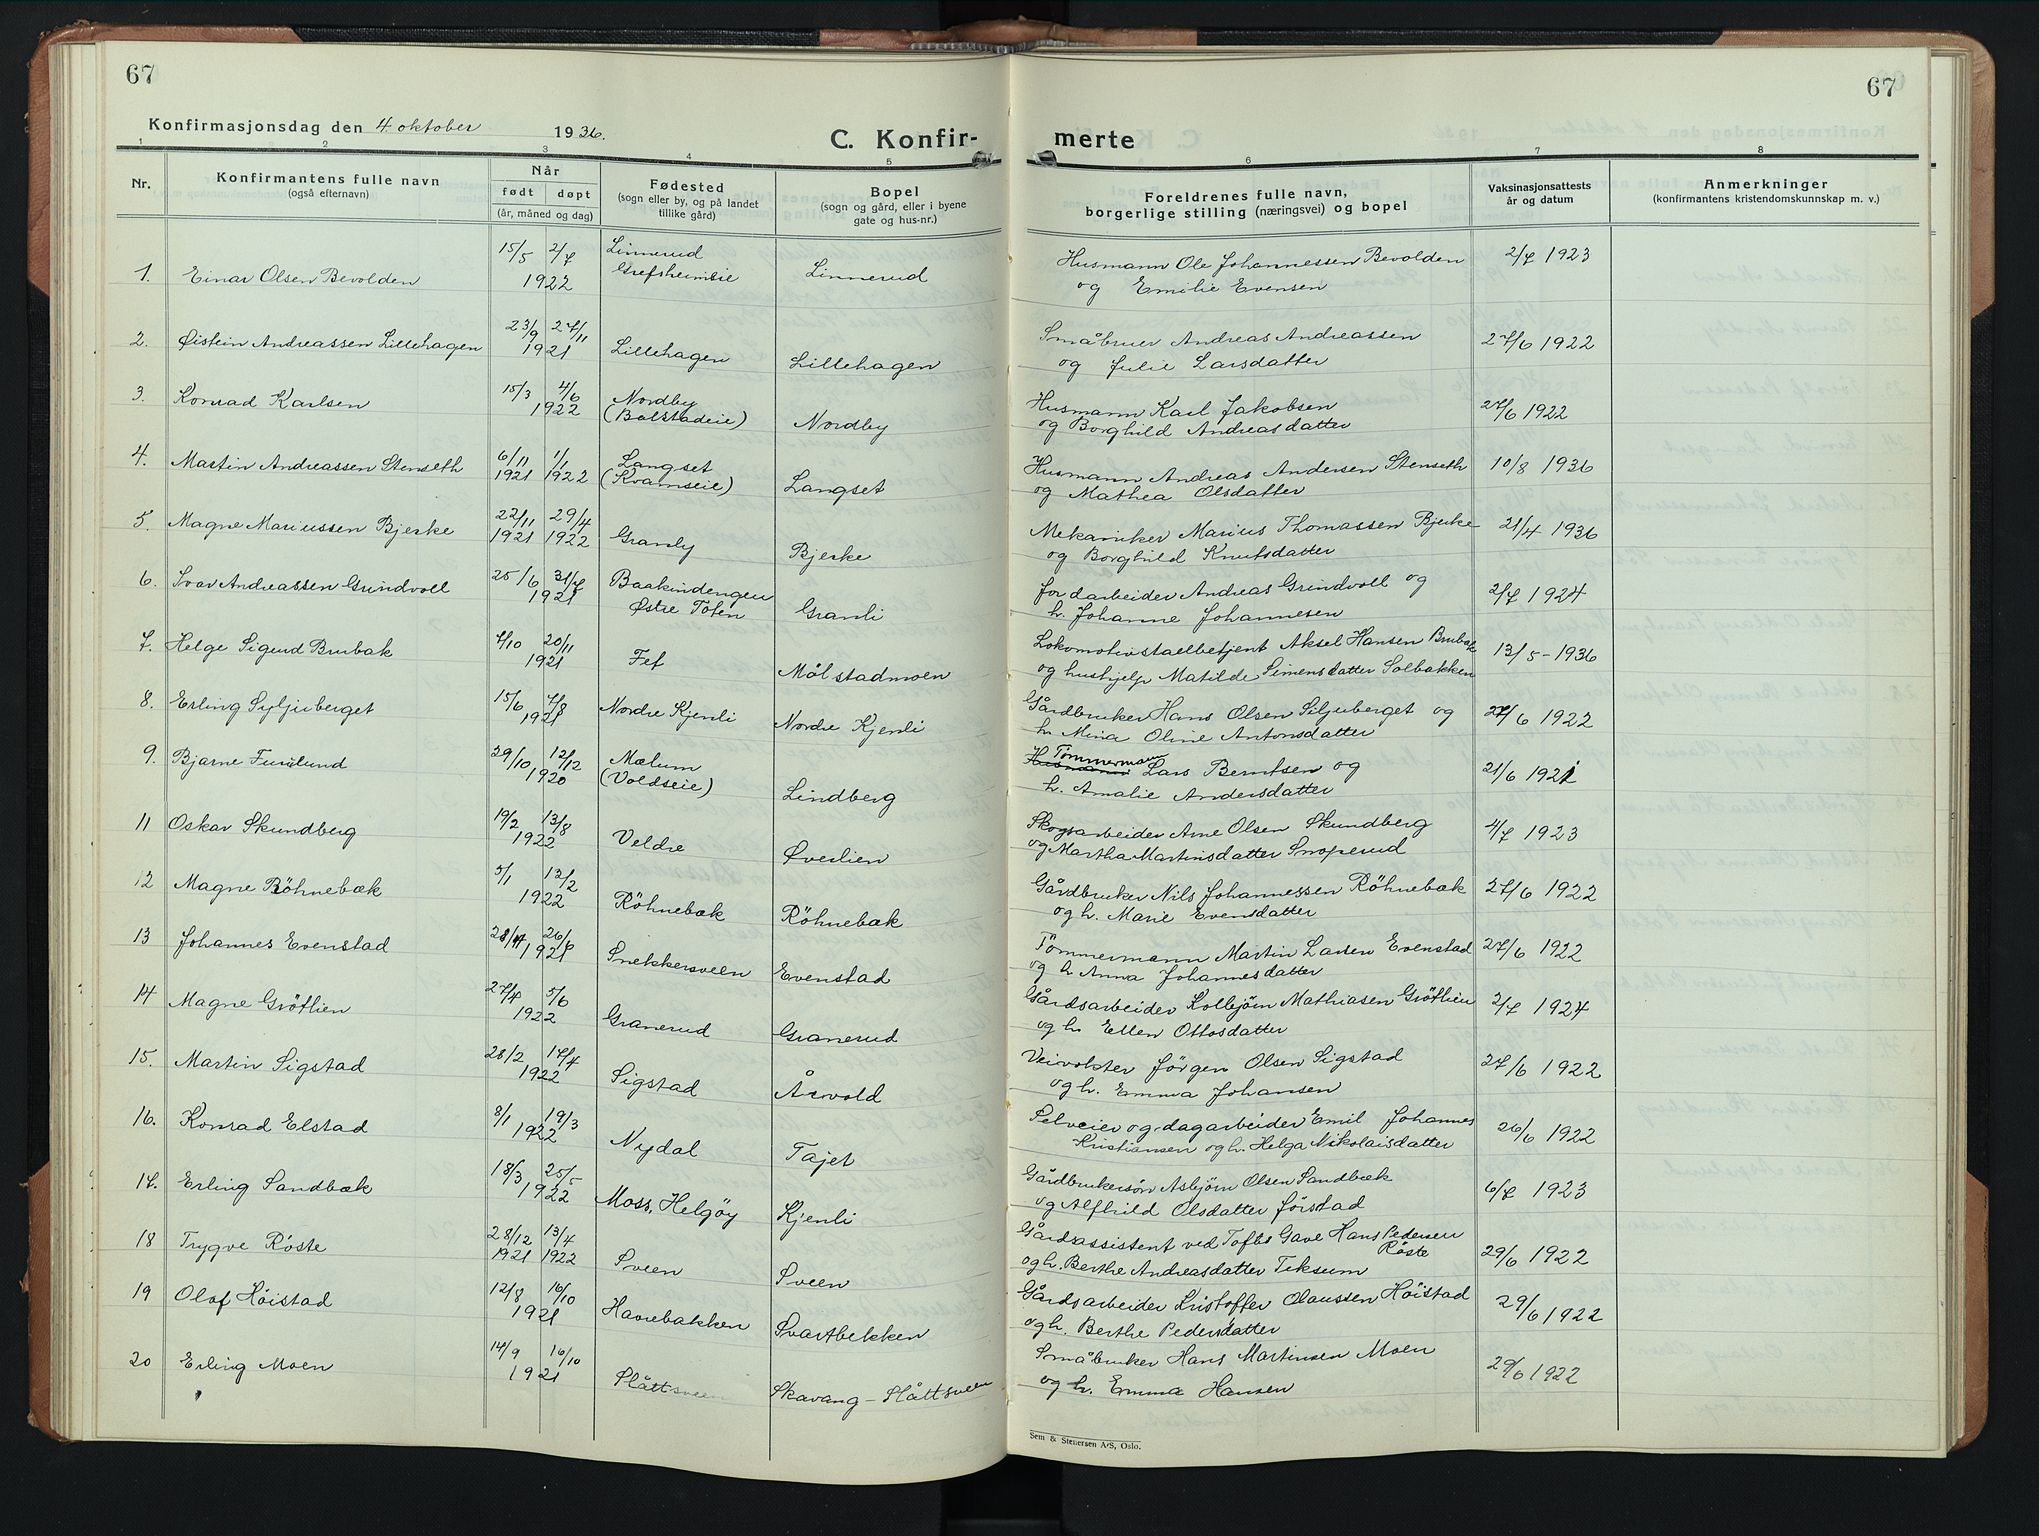 67
67
Konfirmasjonsdag den 4 oktober 1936.
C. Konfir-
merte
1 2 3 4 5 6 7 8
Nr.
Konfirmantens fulle navn
(også efternavn)
Når
født døpt
(år, måned og dag)
Fødested
(sogn eller by, og på landet
tillike gård)
Bopel
(sogn og gård, eller i byene
gate og hus-nr.)
Foreldrenes fulle navn,
borgerlige stilling (næringsvei) og bopel
Vaksinasjonsattests
år og datum
Anmerkninger
(konfirmantens kristendomskunnskap m. v.)
1. Einar Olsen Bevolden 15/5 2/7 1922 Linnerud Grefsheimeie Linnerud Husmann Ole Johannessen Bevolden 2/7 1923
og Emilie Evensen
2. Øistein Andreassen Lillehagen 23/9 27/11 1921 Lillehagen Lillehagen Småbruer Andreas Andreassen 27/6 1922
og Julie Larsdatter
3. Konrad Karlsen 15/3 4/6 1922 Nordby (Bolstadeie) Nordby Husmann Karl Jakobsen 27/6 1922
og Borghild Andreasdatter
4. Martin Andreassen Stenseth 6/11 1921 1/1 1922 Langset (Kvamseie) Langset Husmann Andreas Andersen Stenseth 10/8 1936
og Mathea Olsdatter
5. Magne Mariussen Bjerke 22/11 1921 29/4 1922 Granly Bjerke Mekaniker Marius Thomassen Bjerke 21/4 1936
og Borghild Knutsdatter
6. Ivar Andreassen Grindvoll 25/6 31/7 1921 Baakindengen Østre Toten Granli Jordarbeider Andreas Grindvoll og 2/7 1924
h. Johanne Johannesen
7. Helge Sigurd Brubak 7/10 20/11 1921 Fef Mölstadmoen Lokomotivstallbetjent Aksel Hansen Brubak 13/5-1936
og hushjelp Matilde Simensdatter Solbakken
8. Erling Syljuberget 15/6 7/8 1921 Nordre Kjenli Nordre Kjenli Gårdbruker Hans Olsen Siljuberget og 27/6 1922
h. Mina Oline Antonsdatter
9. Bjarne Furulund 29/10 12/12 1920 Mælum (Voldseie) Lindberg Tømmermann Lars Berntsen og 21/6 1921
h. Amalie Andersdatter
11 Oskar Skundberg 19/2 13/8 1922 Veldre Øverlien Skogsarbeider Arne Olsen Skundberg 4/7 1923
og Martha Martinsdatter Snoperud
12 Magne Röhnebæk 5/1 12/2 1922 Röhnebæk Röhnebæk Gårdbruker Nils Johannessen Röhnebæk 27/6 1922
og h. Marie Evensdatter
13 Johannes Evenstad 1921 Snekkersveen Evenstad Tömmermann Martin Larsen Evenstad 27/6 1922
og h. Anna Johannesdatter
14 Magne Gröttien 27/4 5/6 1922 Granerud Granerud Gårdsarbeider Kolbjörn Mathiasen Gröttien 2/7 1924
og h. Ellen Ottosdatter
15. Martin Sigstad 28/2 17/4 1922 Sigstad Årvold Veivokter Jørgen Olsen Sigstad 27/6 1922
og h. Emma Johansen
16. Konrad Elstad 8/1 19/3 1922 Nydal Tajet Selveier og dagarbeider Emil Johannes 26/6 1922
Kristiansen og h. Helga Nikolaisdatter
17. Erling Sandbæk 18/3 25/5 1922 Moss, Helgöy Kjenli Gårdbrukersön Asbjørn Olsen Sandbæk 6/7 1923
og Alfhild Olsdatter Jörstad
18 Trygve Röste 28/12 1921 13/4 1922 Sveen Sveen Gårdsassistent ved Tofts Gave Hans Pedersen Röste 29/6 1922
og h. Berthe Andreasdatter Teksum
19 Olaf Höistad 12/8 16/10 1921 Havrebakken Svartbekken Gårdsarbeider Kristoffer Olaussen Höistad 29/6 1922
og h. Berthe Pedersdatter
20 Erling Moen 14/9 16/10 1921 Slåttsveen Skavang - Slåttsveen Småbruker Hans Martinsen Moen 29/6 1922
og h. Emma Hansen
Sem & Stenersen A/S, Oslo.